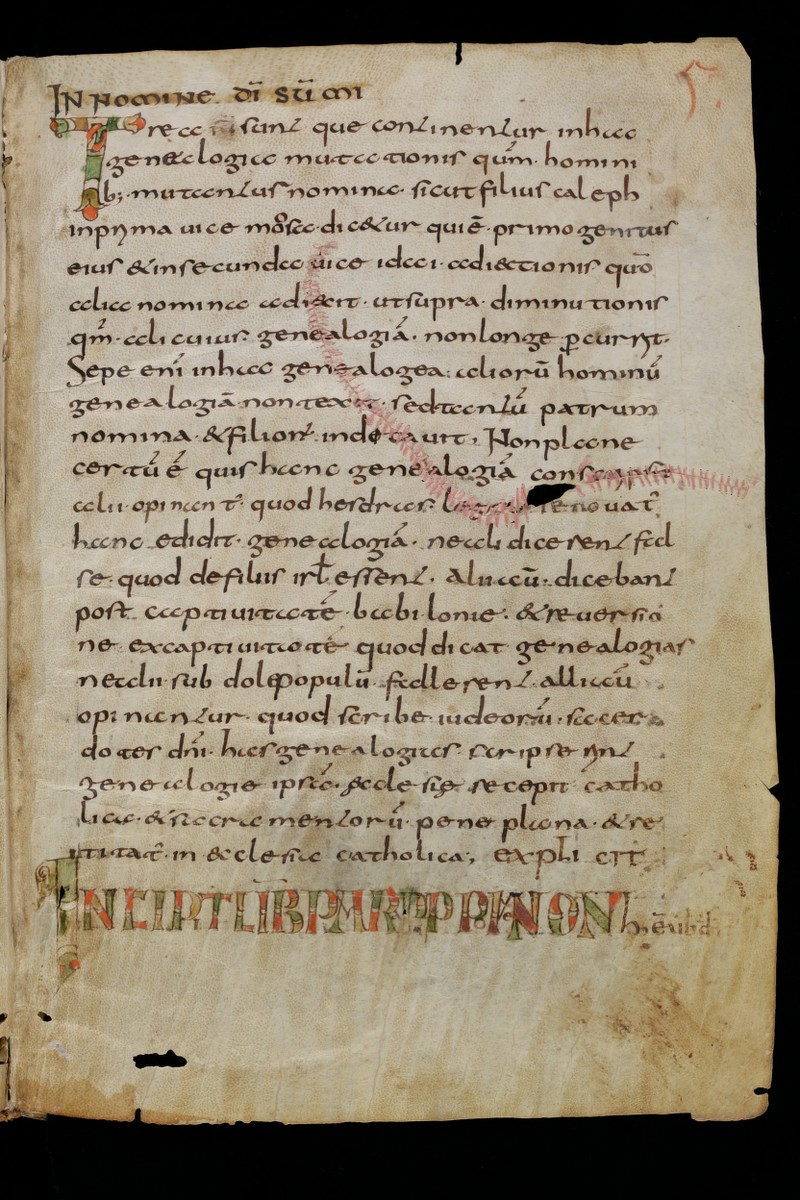 IN Nomine dĩ Sũmi
Trea sunt que continentur in hac
genealogia mutationis qũm homini
b; mutantus nomina· sicut filius caleph
in pryma uice mosac dicetur qui ẽ primogenitus
eius & in secunda uice idai· adiectionis quõ
alia nomina adiecit· ut supra· diminutionis
qm̃· ali cuius· genealogiã· non longe ꝑcurryt·
Sepe enĩ in hac genealogea· aliorũ hominũ
genealogiã non texit· sed tantũ patrum
nomina· & filior̃ indecauit, Non plane
certũ ẽ quis hanc genealogiã
alii opinant̃· quod hesdras· renouat̃
hanc edidit· genealogiã· ne ali dicerent fal
se· quod de filiis isrl̃ essent· Alii aũ· diceban
post captiuitatẽ babilonie· & reuersio
ne ex captiuitatẽ quod dicat genealogias
ne alii sub dole populũ fallerent· allii aũ
opinantur· quod scribe iudeorũ· sacer
dotes dnĩ· has genealogias· scripserynt
genealogie ipsã· aeclesie recepit catho
lica· & sacramentorũ· pene plana· & re
citat̃· in aeclesia catholica; expli cit
INCIPIT LIB PAR